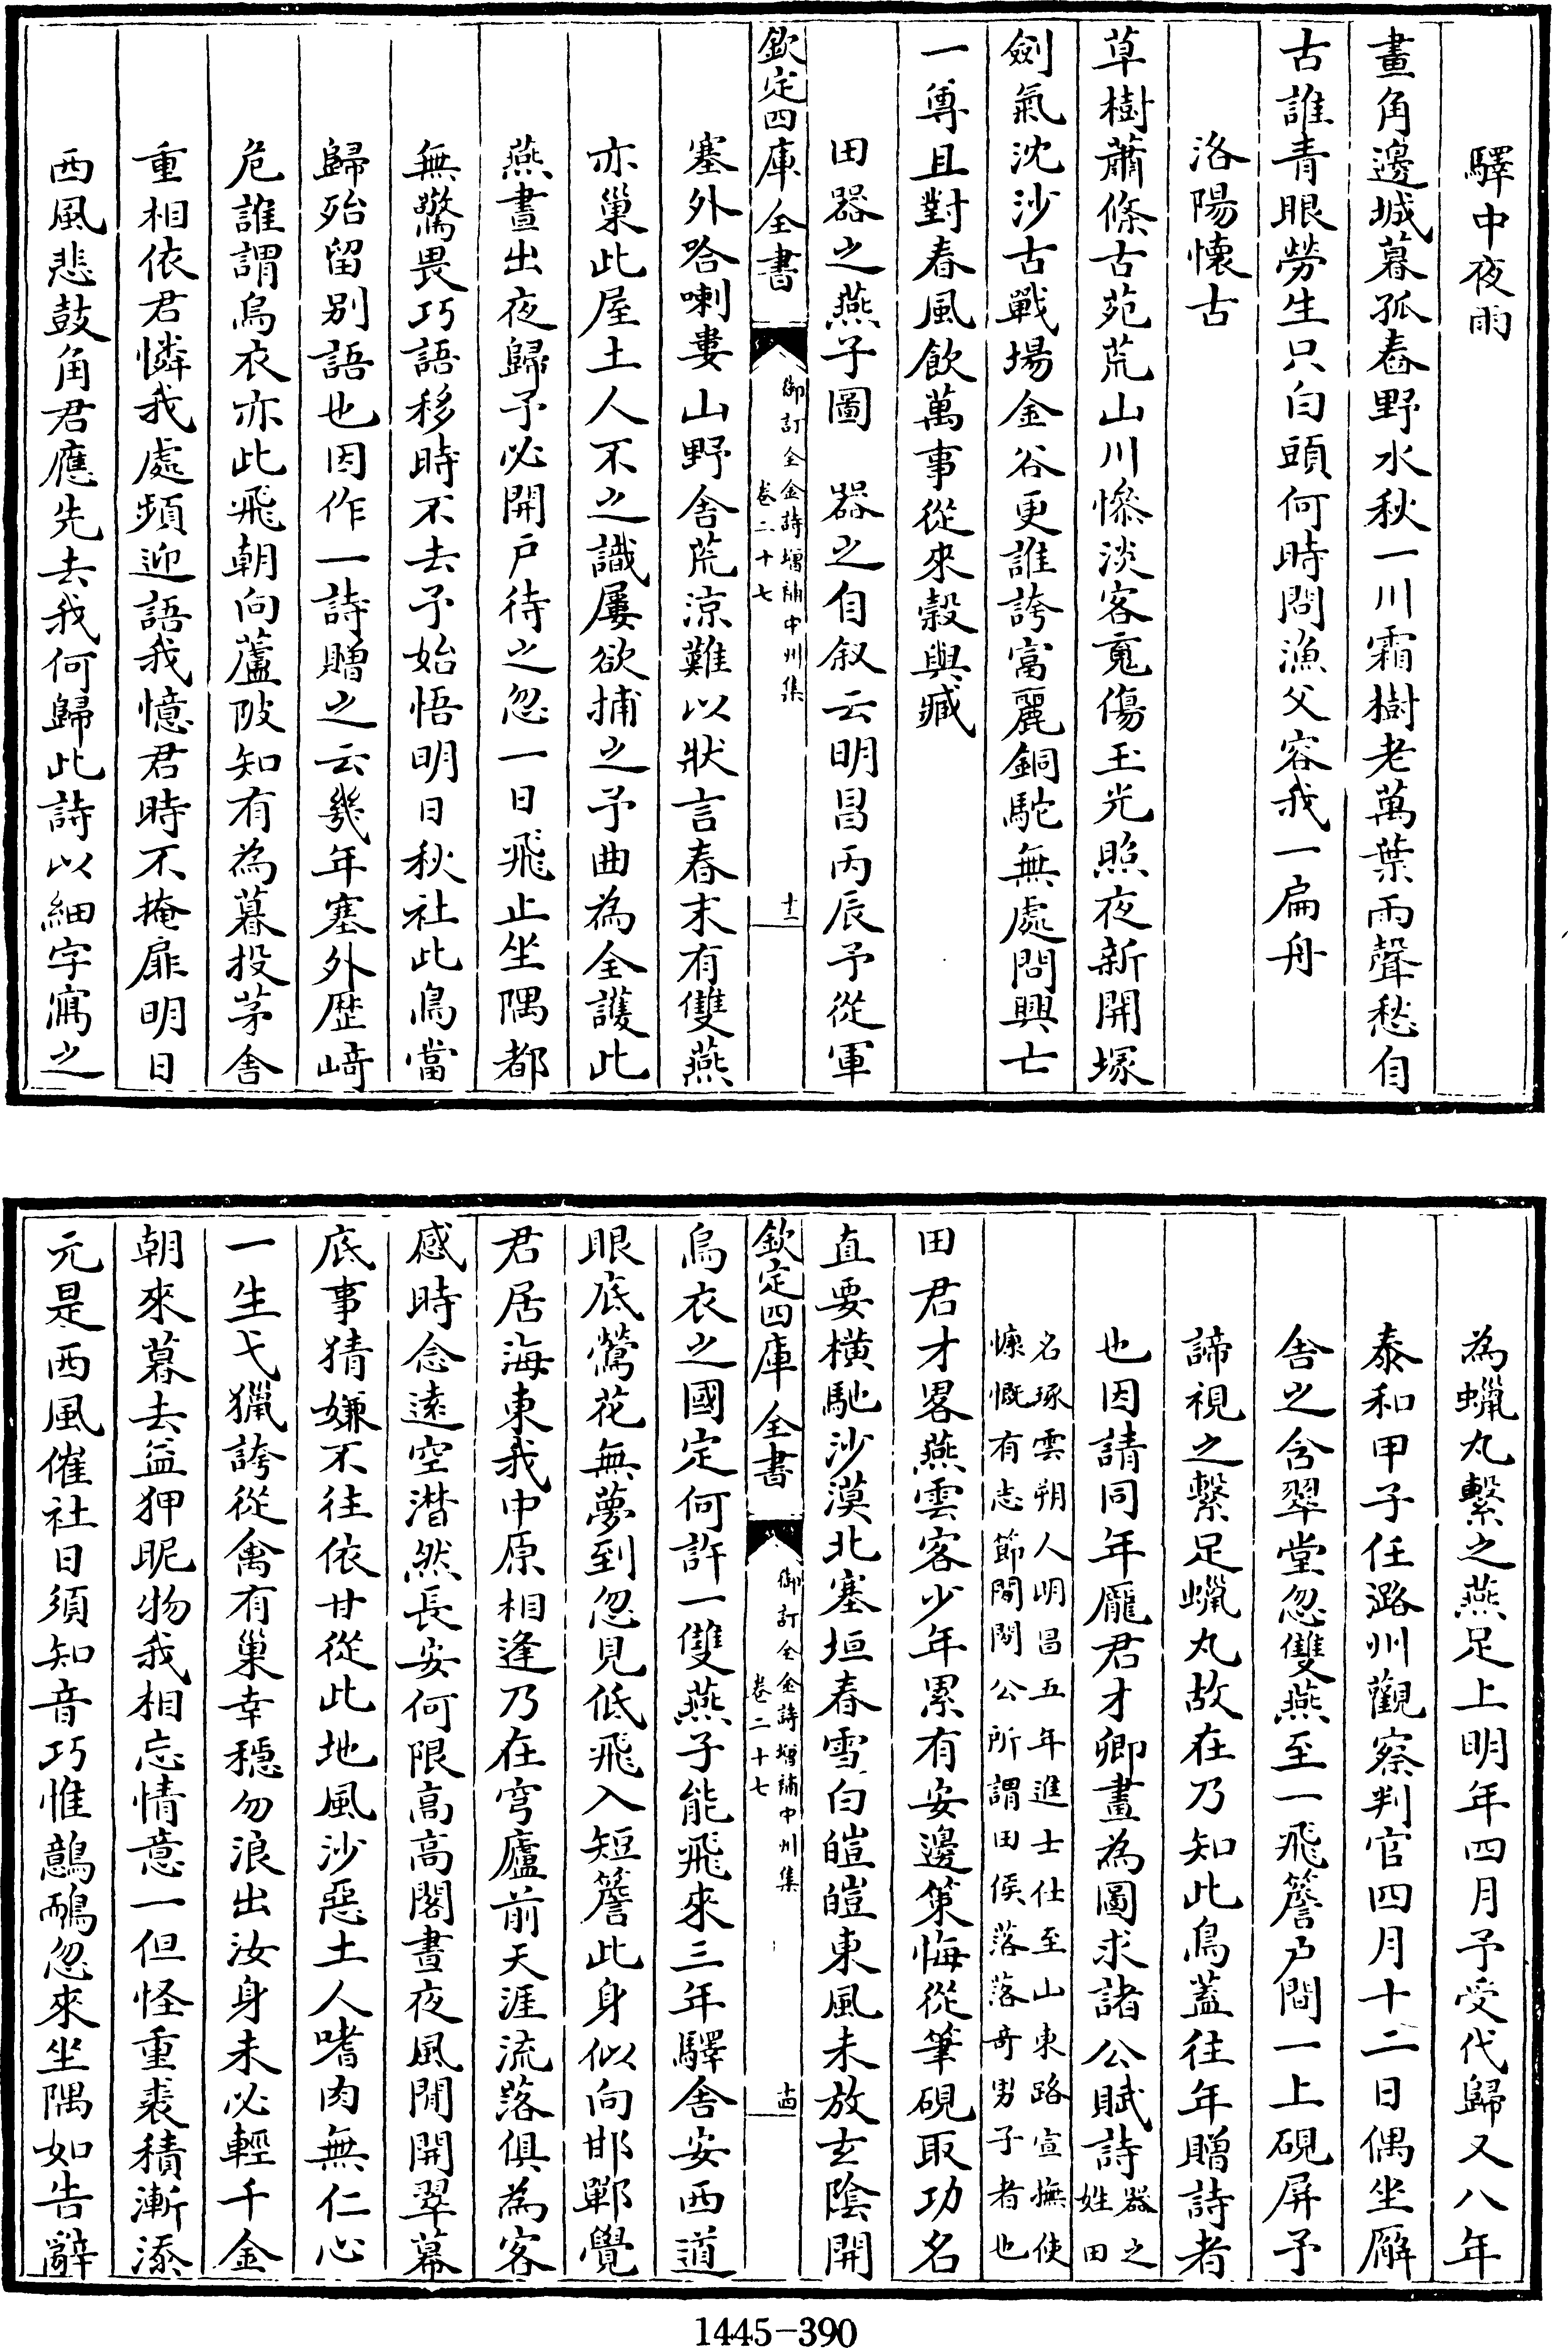 驛中夜雨
畫角邊城暮孤舂野水秋一川霜樹老萬葉雨聲愁自
古誰青眼勞生只白頭何時問漁父容我一扁舟
洛陽懷古
草樹蕭條古苑荒山川慘淡客寃傷玉光照夜新開塚
劍氣沈沙古戰場金谷更誰誇富麗銅駝無處問興亡
一尊且對春風飲萬事從來穀與臧
田器之燕子圖　器之自叙云明昌丙辰予從軍
欽定四庫全書
御訂全金詩增補中州集
卷二十七
十三
塞外哈喇婁山野舍荒涼難以狀言春末有雙燕
亦巢此屋土人不之識屢欲捕之予曲為全護此
燕晝出夜歸予必開戶待之忽一日飛止坐隅都
無驚畏巧語移時不去予始悟明日秋社此鳥當
歸殆留别語也因作一詩贈之云幾年塞外歷崎
危誰謂烏衣亦此飛朝向蘆陂知有為暮投茅舍
重相依君憐我處頻迎語我憶君時不掩扉明日
西風悲鼓角君應先去我何歸此詩以細字寫之
為蠟丸繫之燕足上明年四月予受代歸又八年
泰和甲子任潞州觀察判官四月十二日偶坐廨
舍之含翠堂忽雙燕至一飛簷户間一上硯屏予
諦視之繫足蠟丸故在乃知此鳥蓋往年贈詩者
也因請同年龐君才卿畫為圖求諸公賦詩器之
姓田
名琢雲朔人明昌五年進士仕至山東路宣撫使
慷慨有志節閒閒公所謂田侯落落奇男子者也
田君才畧燕雲客少年累有安邊策悔從筆硯取功名
直要橫馳沙漠北塞垣春雪白皚皚東風未放玄陰開
欽定四庫全書
御訂全金詩增補中州集
卷二十七
十四
烏衣之國定何許一雙燕子能飛來三年驛舍安西道
眼底鶯花無夢到忽見低飛入短簷此身似向邯鄲覺
君居海東我中原相逢乃在穹廬前天涯流落俱為客
感時念遠空潸然長安何限高高閣晝夜風閒開翠幕
底事猜嫌不往依甘從此地風沙惡土人嗜肉無仁心
一生弋獵誇從禽有巢幸穩勿浪出汝身未必輕千金
朝來暮去益狎昵物我相忘情意一但怪重裘積漸添
元是西風催社日須知音巧惟鷾鴯忽來坐隅如告辭
1445-390